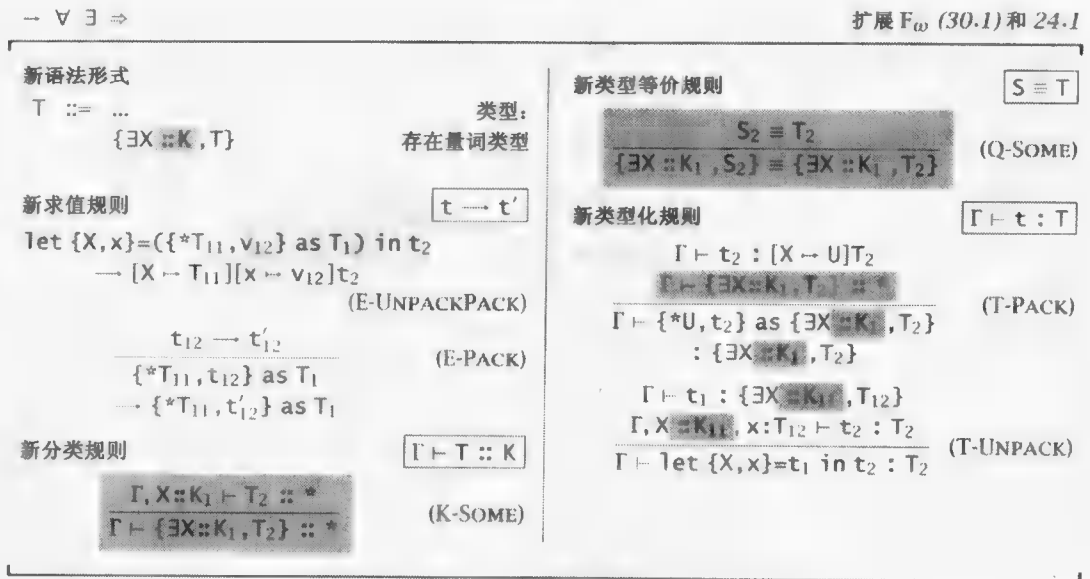 → ∀ ∃ ⇒
扩展 Fω (30.1)和 24.1
新语法形式
T ::= ...
类型:
{∃X::K,T}
存在量词类型
新求值规则
t → t′
let {X,x}=({*T11,v12} as T1) in t2
→ [X ↦ T11][x ↦ v12]t2
(E-UNPACKPACK)
t12 → t′12
{*T11,t12} as T1
→ {*T11,t′12} as T1
(E-PACK)
新分类规则
Γ ⊢ T :: K
Γ, X::K1 ⊢ T2 :: *
Γ ⊢ {∃X::K1,T2} :: *
(K-SOME)
新类型等价规则
S ≡ T
S2 ≡ T2
{∃X::K1,S2} ≡ {∃X::K1,T2}
(Q-SOME)
新类型化规则
Γ ⊢ t : T
Γ ⊢ t2 : [X ↦ U]T2
Γ ⊢ {∃X::K1,T2} :: *
Γ ⊢ {*U,t2} as {∃X::K1,T2}
: {∃X::K1,T2}
(T-PACK)
Γ ⊢ t1 : {∃X::K11,T12}
Γ, X::K11, x:T12 ⊢ t2 : T2
Γ ⊢ let {X,x}=t1 in t2 : T2
(T-UNPACK)